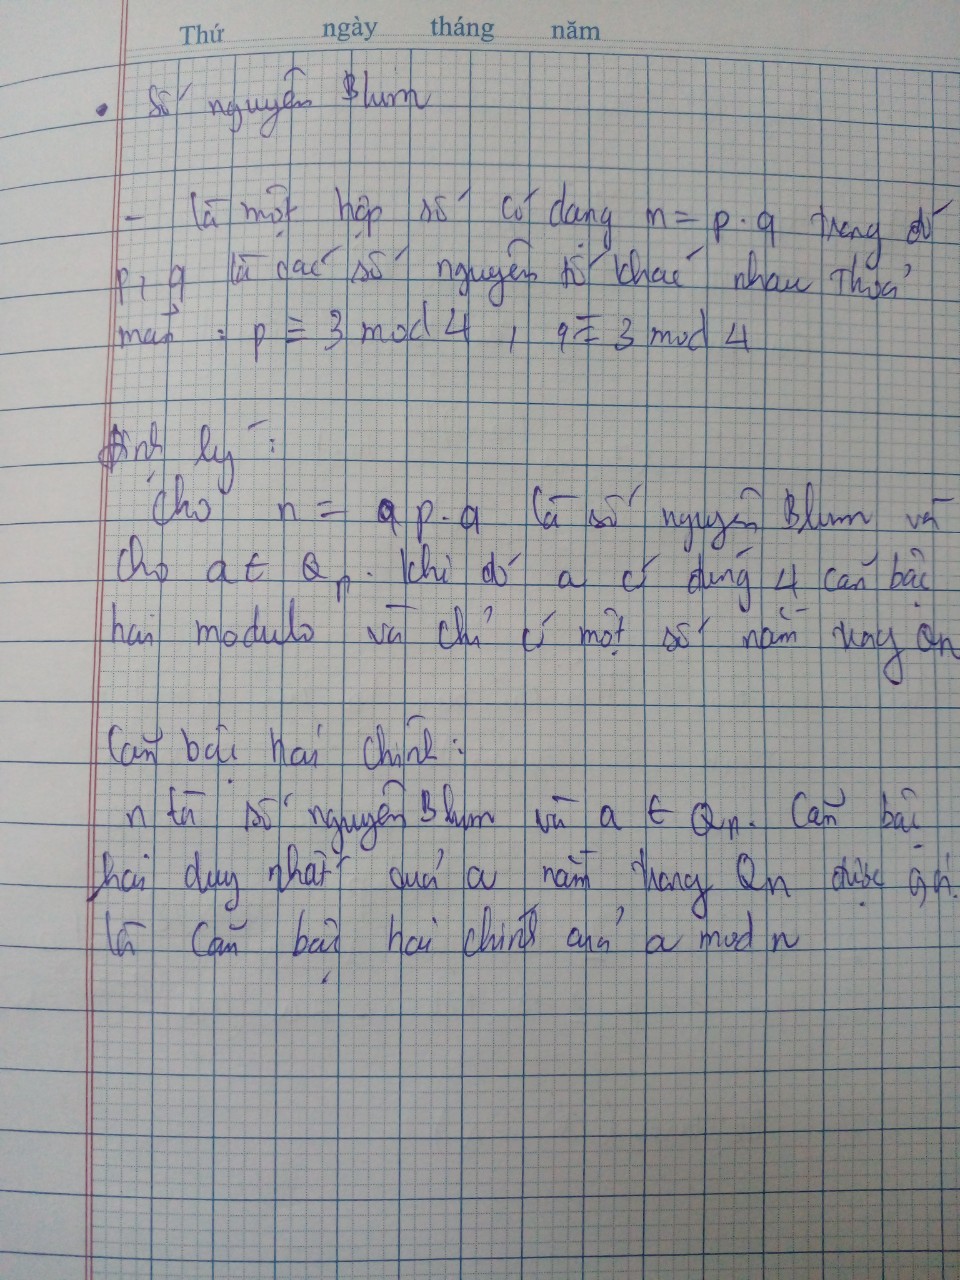 Thứ ngày tháng năm
• Số nguyên Blum
- là một hợp số có dạng n = p.q trong đó
p, q là các số nguyên tố khác nhau thỏa
mãn : p ≡ 3 mod 4 , q ≡ 3 mod 4
Định lý :
Cho n = p.q là số nguyên Blum và
cho a ∈ Qn. Khi đó a có đúng 4 căn bậc
hai modulo và chỉ có một số nằm trong Qn
Căn bậc hai chính :
n là số nguyên Blum và a ∈ Qn. Căn bậc
hai duy nhất của a nằm trong Qn được gọi
là căn bậc hai chính của a mod n